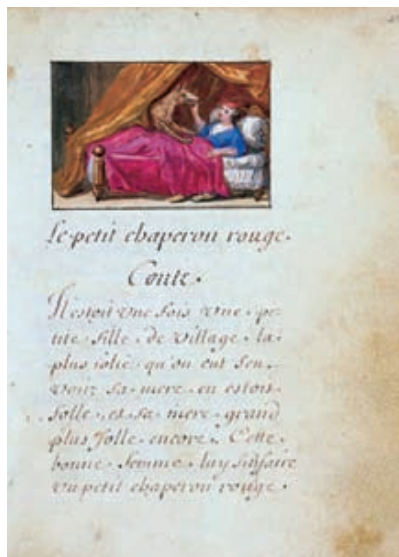 Le petit chaperon rouge.
Conte.
Il estoit une fois une pe-
tite fille de village la
plus jolie qu'on eut sçeu
voir sa mere en estoit
folle, et sa mere grand
plus folle encore. Cette
bonne femme luy fit faire
un petit chaperon rouge.